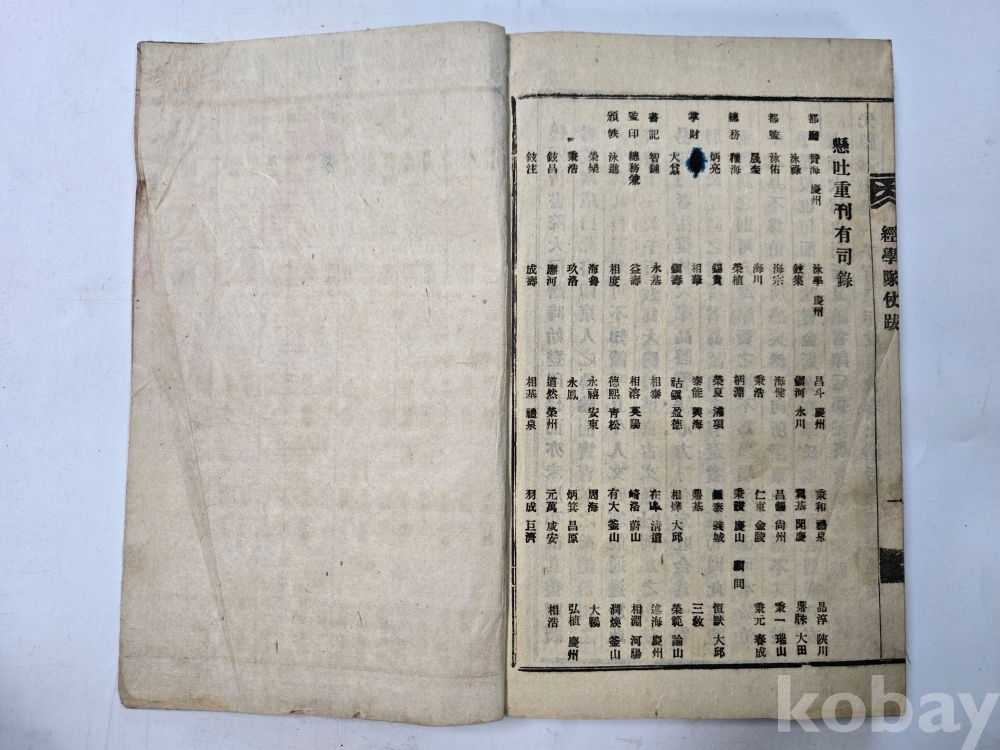 經學隊仗跋
一
懸吐重刊有司錄
都廳 贊海 慶州 泳學 慶州 昌斗 慶州 秉和 禮泉 晶淳 陜川
泳祿 鍾集 鎭河 永川 翼基 聞慶 鼎牀 大田
都監 泳佑 海宗 海健 昌錫 尙州 秉一 瑞山
晟奎 海川 秉浩 仁東 金陵 秉元 春成
總務 種海 榮植 柄淵 秉讚 慶山 顧問
炳亮 錫貴 榮夏 浦項 鍾泰 義城 恒默 大邱
掌財 相華 泰能 興海 鼎基 三敎
大翁 鎭壽 祜鎭 盈德 相燁 大邱 榮範 論山
書記 智鎬 永基 相泰 在 淸道 述海 慶州
監印 總務兼 益壽 相溶 英陽 崎洛 蔚山 相淵 河陽
頒帙 泳進 相度 德熙 靑松 有大 釜山 潤煥 釜山
榮欒 海魯 永禧 安東 周海 大鶴
秉浩 玖洛 永鳳 炳箕 昌原 弘植 慶州
鼓昌 廱河 道然 榮州 元萬 咸安 相浩
鼓注 成壽 相基 禮泉 羽成 巨濟
kobay